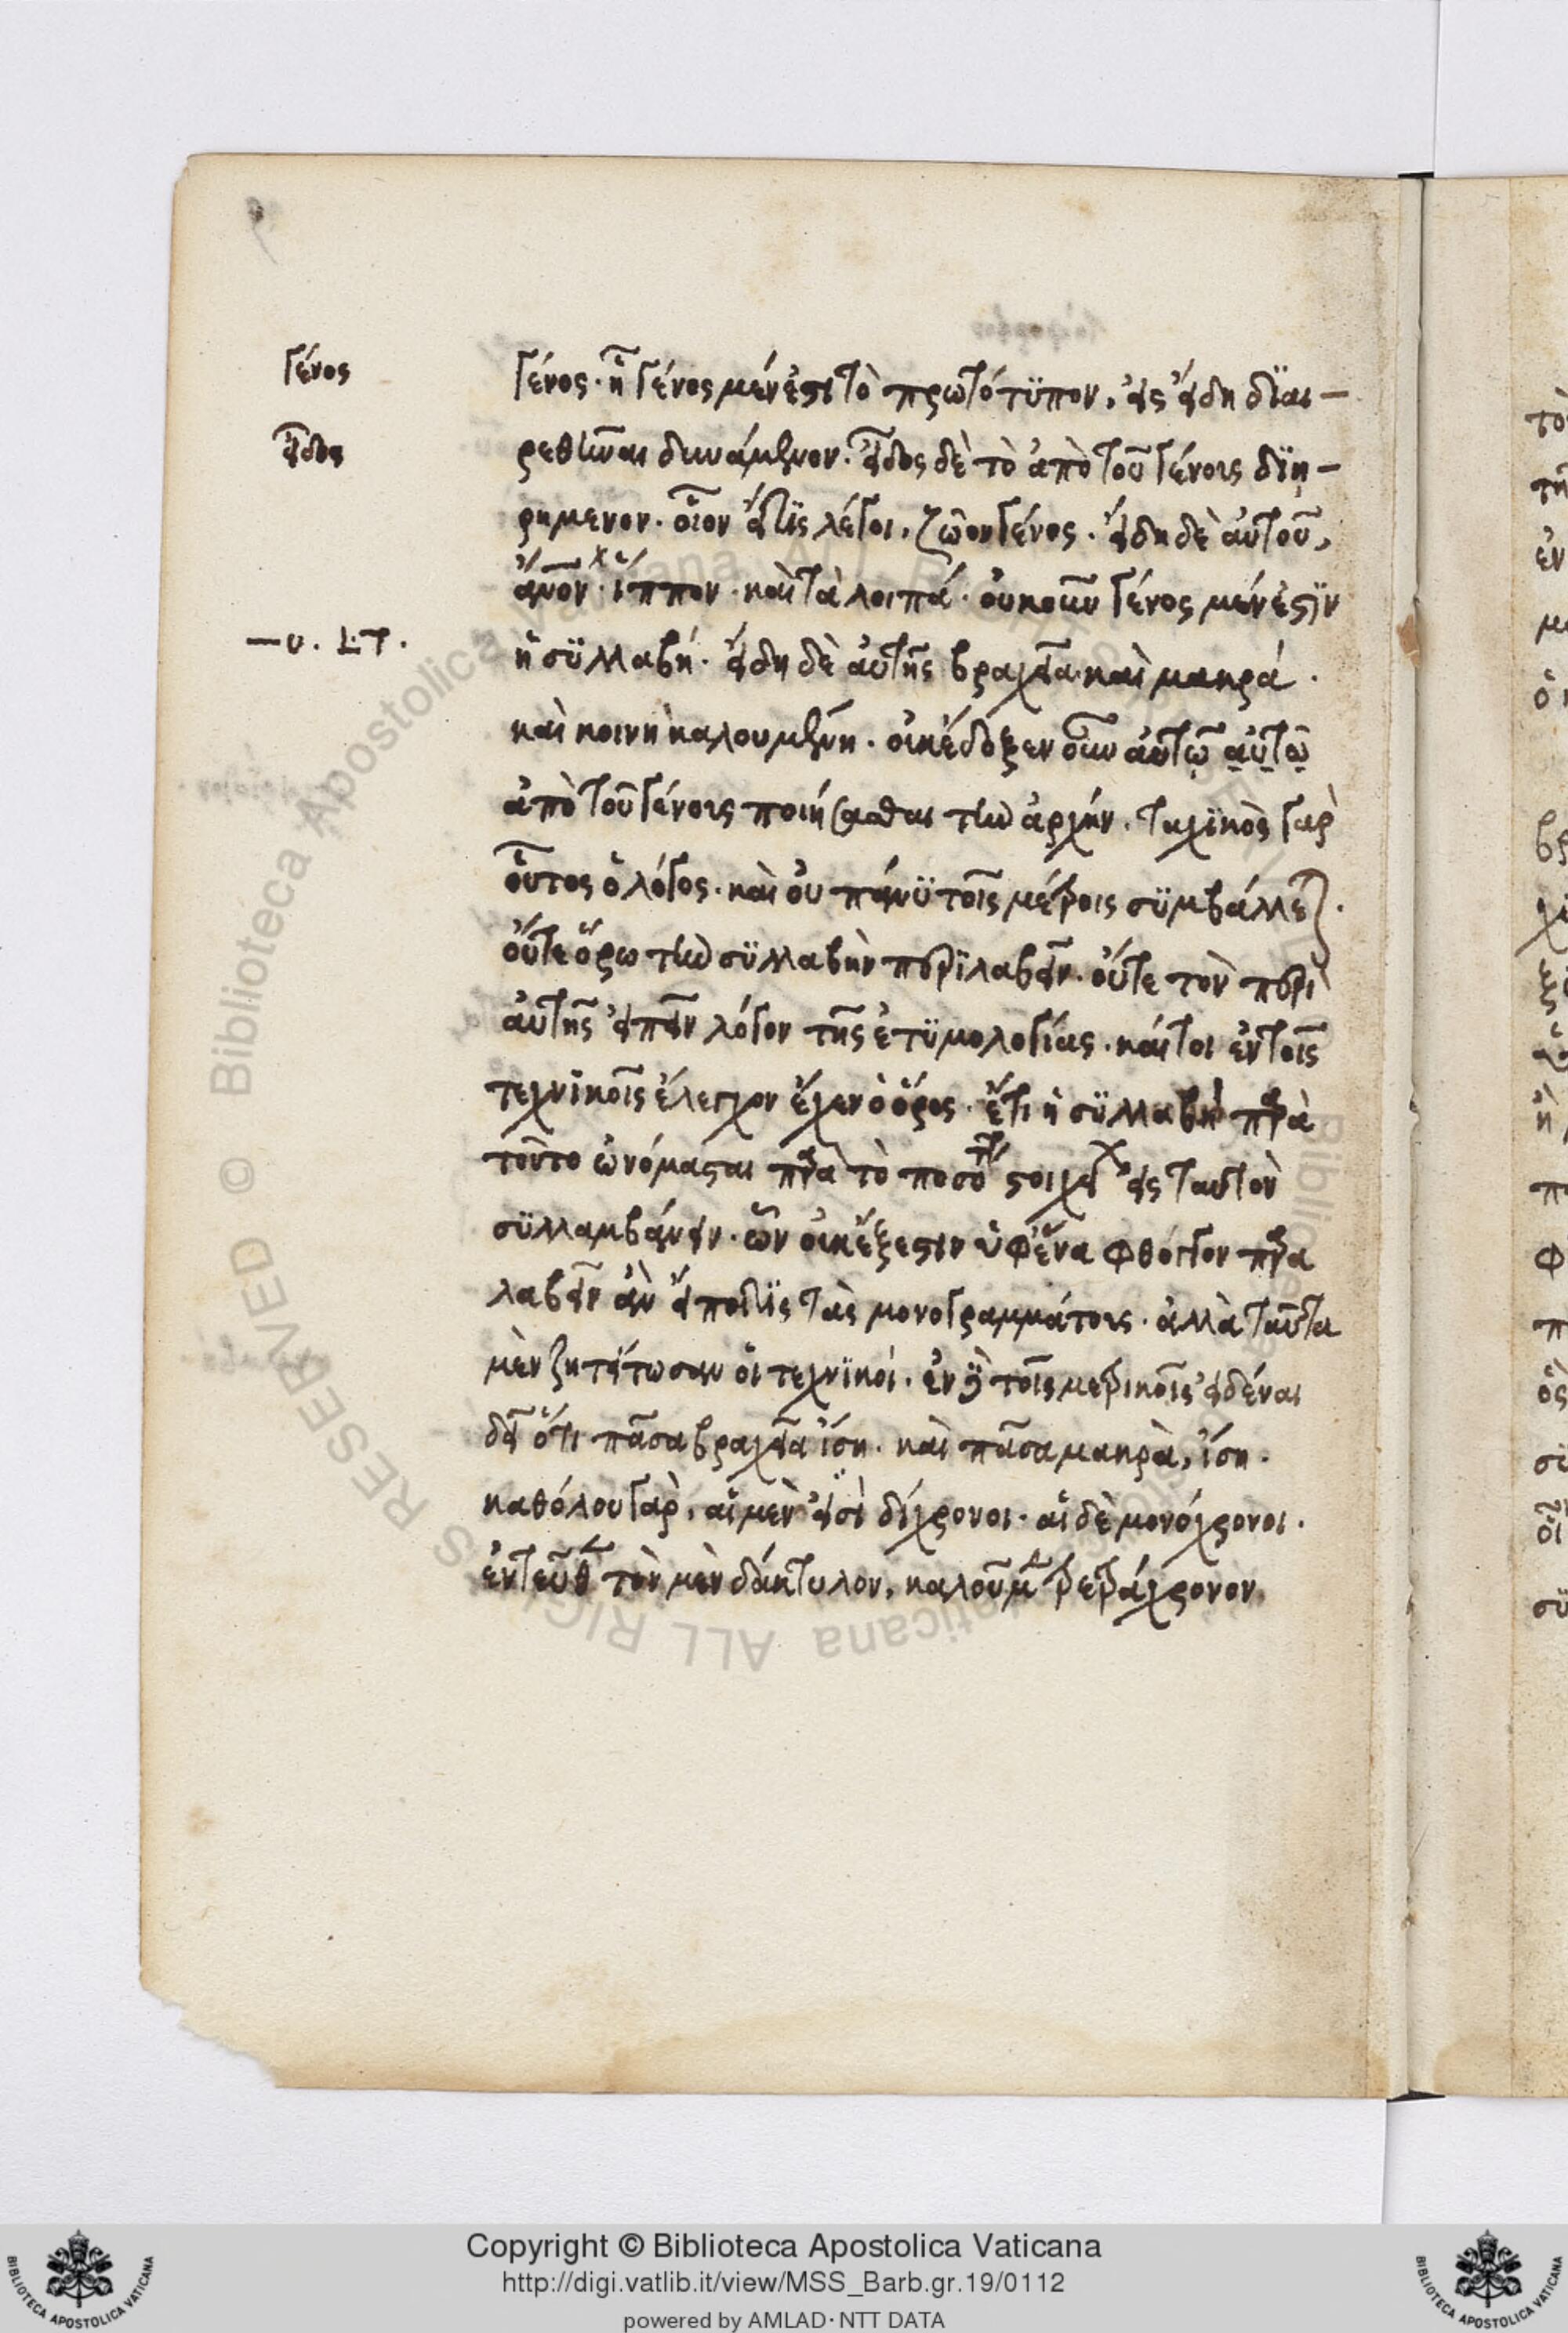 Γένος
εἶδος
—υ. Ļτ.
Γένος· ἢ γένος μέν ἐστι τὸ πρωτότϋπον, εἰς εἴδη δϊαι-
ρεθῆναι δυνάμενον· εἶδος δὲ τὸ ἀπὸ τοῦ γένους δϊῃ-
ρημενον· οἷον εἴ τϊς λέγοι, ζῶον γένος· εἴδη δὲ αὐτοῦ,
ἄνον· ἵππον· καὶ τὰ λοιπά· οὐκοῦν γένος μέν ἐστϊν
ἡ σϋλλαβή· εἴδη δὲ αὐτῆς βραχεῖα· καὶ μακρά·
καὶ κοινὴ καλουμένη· οὐκ ἔδοξεν οὖν αὐτῷ αὐτῷ
ἀπὸ τοῦ γένους ποιήσασθαι τὴν ἀρχήν· τεχϊκὸς γὰρ
οὗτος ὁ λόγος· καὶ οὐ πάνϋ τοῖς μέτροις σϋμβάλλει·
οὔτε ὅρω τὴν σϋλλαβὴν περϊλαβεῖν· οὔτε τὸν περὶ
αὐτῆς εἰπεῖν λόγον τῆς ἐτϋμολογίας· καίτοι ἐν τοῖς
τεχνϊκοῖς ἔλεγχον ἔχεν ὁ ὅρος· ἔτι ἡ σϋλλαβὴ παρὰ
τοῦτο ὠνόμασται παρὰ τὸ ποσότητα στοιχεί εἰς ταυτὸν
σϋλλαμβάνειν· ὧν οὐκ ἔξεστιν ὑφ' ἕνα φθόγγον παρα
λαβεῖν ἂν εἴποι τϊς τὰς μονογραμμάτους· ἀλλὰ ταῦτα
μὲν ζητείτωσαν οἱ τεχνϊκοί· ἐν δὲ τοῖς μετρικοῖς εἰδέναι
δεῖ ὅτι πᾶσα βραχεῖα ἴση· καὶ πᾶσα μακρὰ, ἴση·
καθόλου γὰρ, αἱ μὲν εἰσὶ δίχρονοι· αἱ δὲ μονόχρονοι·
ἐντεῦθεν τὸν μὲν δάκτυλον, καλοῦμεν τετράχρονον
Copyright © Biblioteca Apostolica Vaticana
http://digi.vatlib.it/view/MSS_Barb.gr.19/0112
powered by AMLAD· NTT DATA